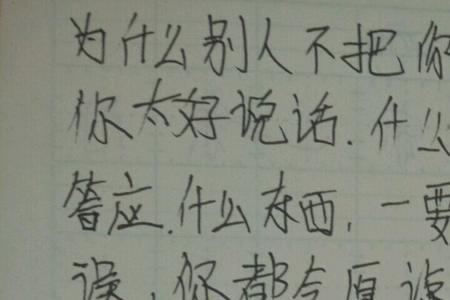 为什么别人不把你
你太好说话.什么
答应.什么东西,一要
误,你都会原谅